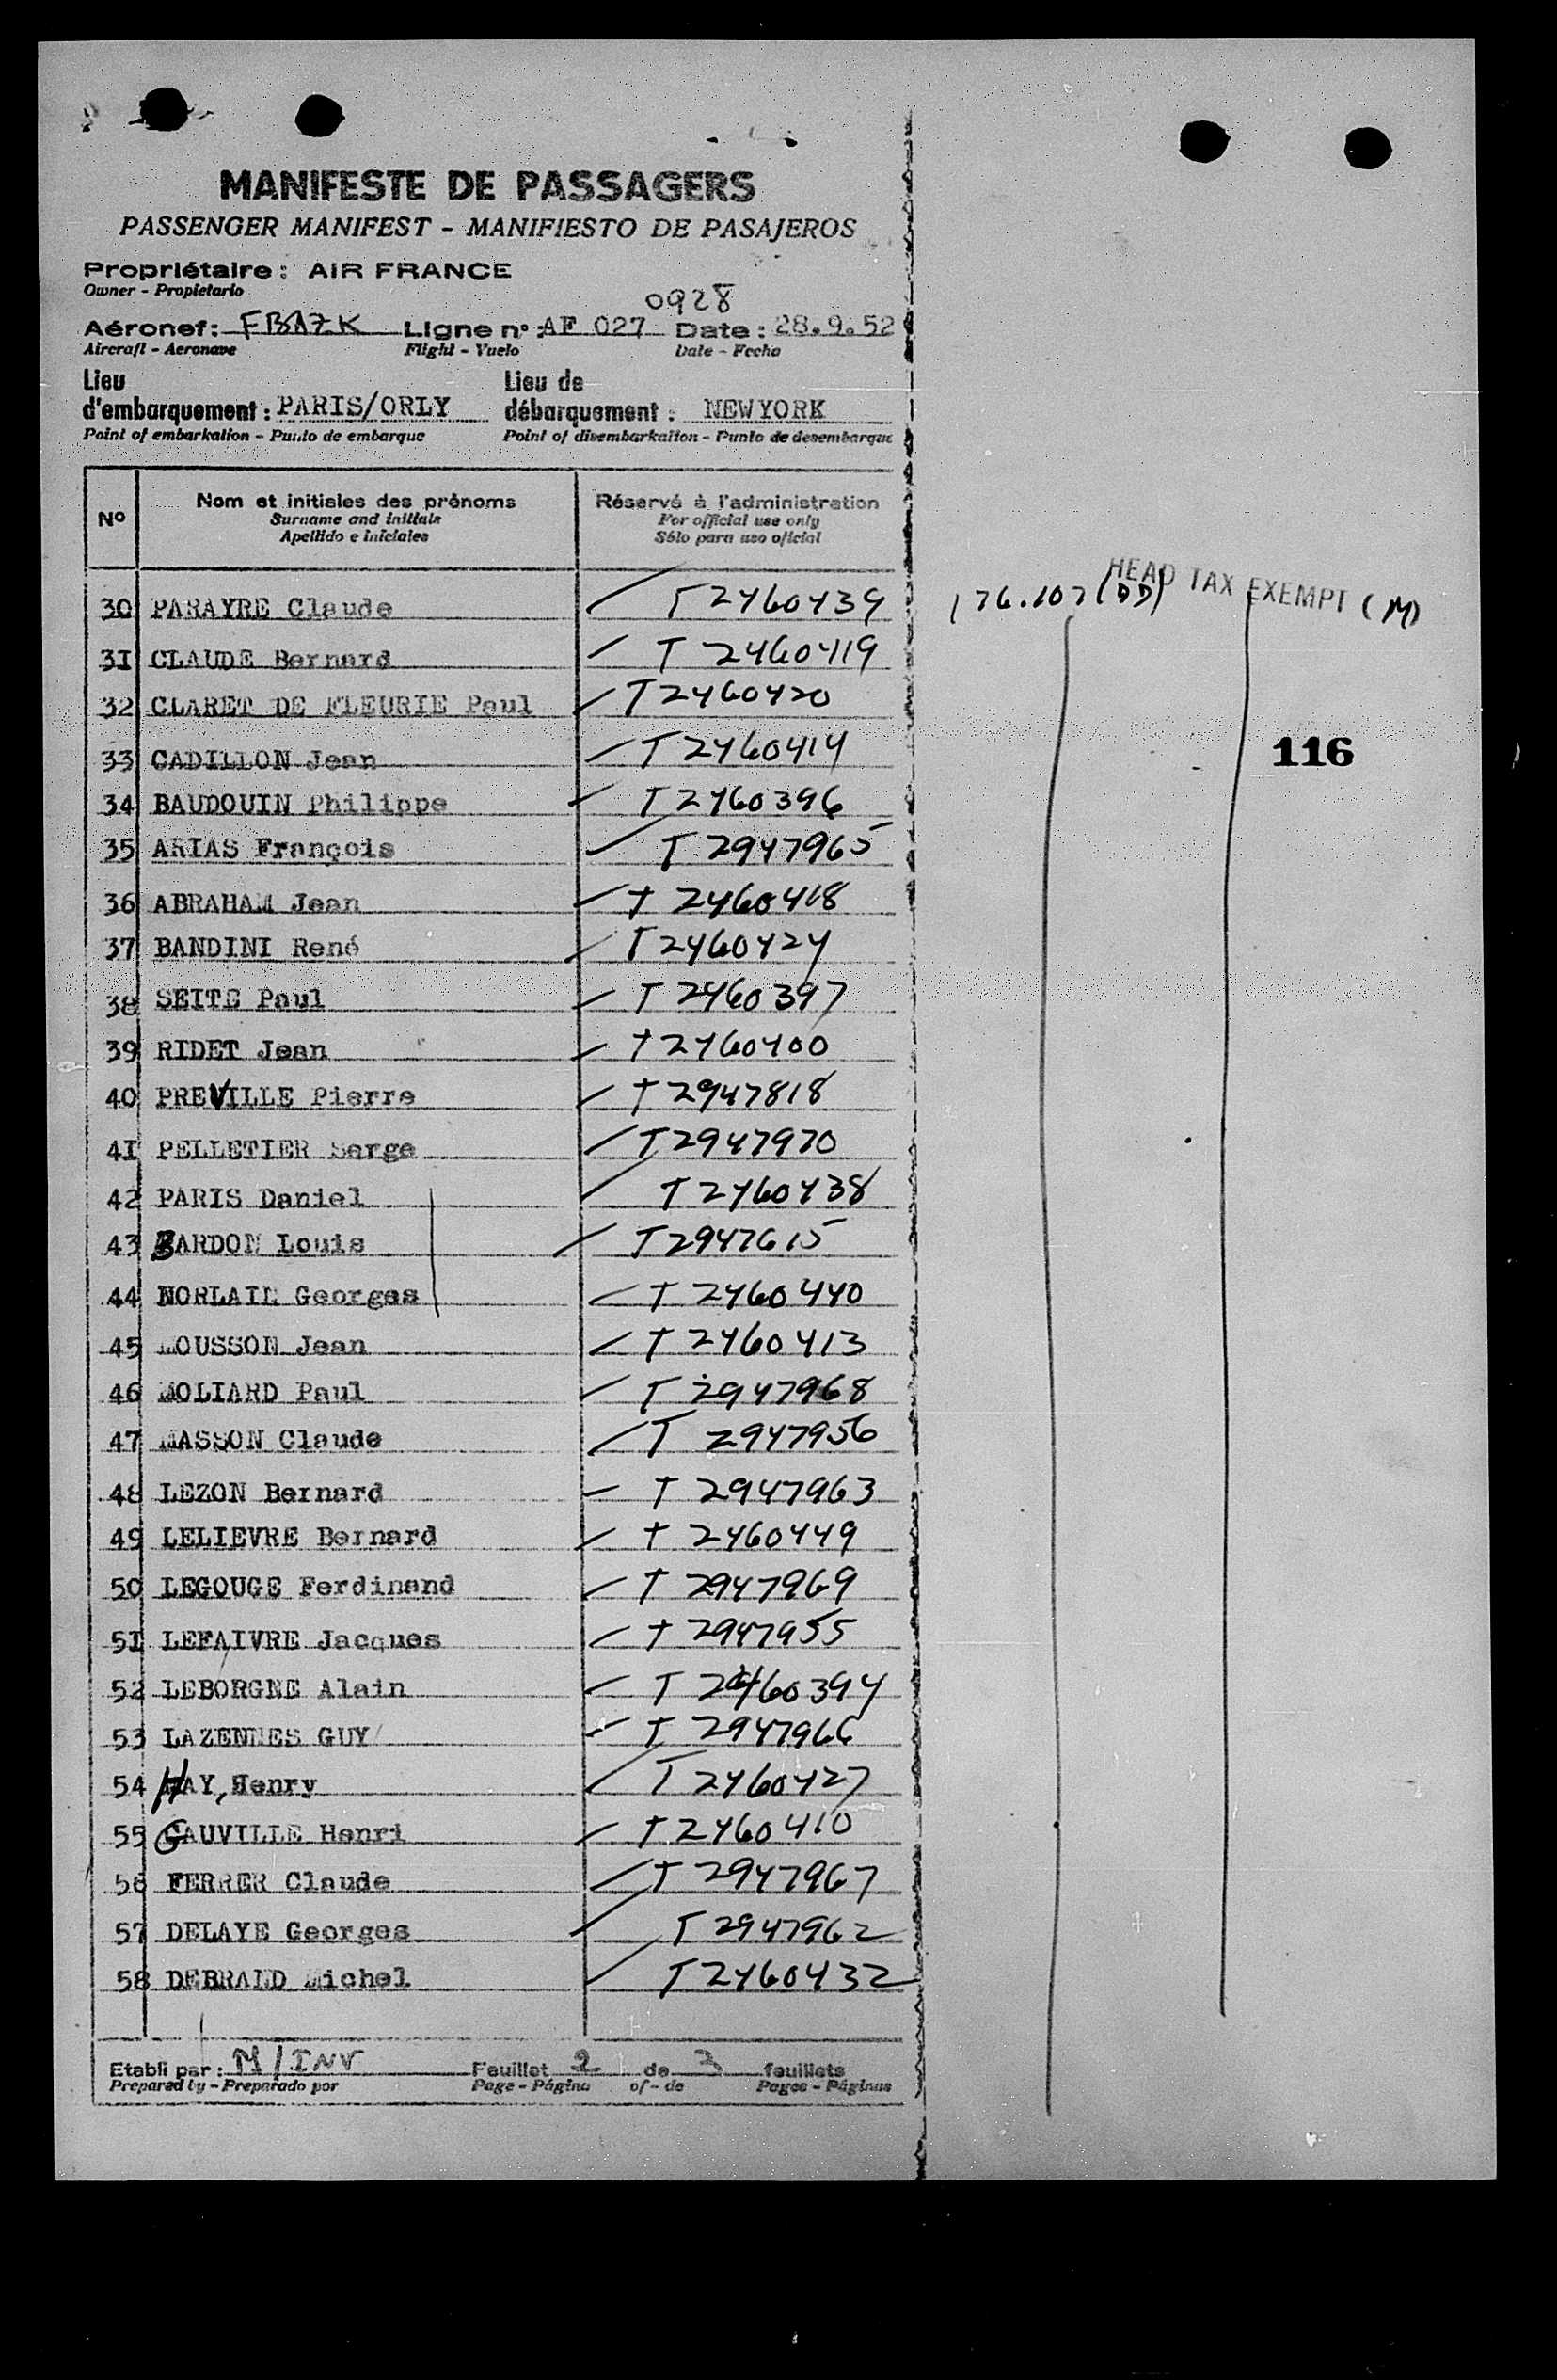 MANIFESTE DE PASSAGERS
PASSENGER MANIFEST - MANIFIESTO DE PASAJEROS
Propriétaire : AIR FRANCE
Owner - Propietario
0928
Aéronef : FBAZK Ligne n° : AF 027 Date : 28.9.52
Aircraft - Aeronave Flight - Vuelo Date - Fecha
Lieu d'embarquement : PARIS/ORLY Lieu de débarquement : NEWYORK
Point of embarkation - Punto de embarque Point of disembarkation - Punto de desembarque
N° Nom et initiales des prénoms Réservé à l'administration
Surname and initials For official use only
Apellido e iniciales Sólo para uso oficial
HEAD TAX EXEMPT (M)
30 PARAYRE Claude T2460439 176.107 (DD)
31 CLAUDE Bernard T 2460419
32 CLARET DE FLEURIE Paul T2460420
116
33 CADILLON Jean T 2460414
34 BAUDOUIN Philippe T2460396
35 ARIAS François T 2947965
36 ABRAHAM Jean T 2460418
37 BANDINI René T2460424
38 SEITE Paul T 2460397
39 RIDET Jean T2460400
40 PREVILLE Pierre T 2947818
41 PELLETIER Serge T2947970
42 PARIS Daniel T 2460438
43 BARDON Louis T2947615
44 NORLAIN Georges T 2460440
45 MOUSSON Jean T 2460413
46 MOLIARD Paul T 2947968
47 MASSON Claude T 2947956
48 LEZON Bernard T 2947963
49 LELIEVRE Bernard T 2460449
50 LEGOUGE Ferdinand T 2947969
51 LEFAIVRE Jacques T 2947955
52 LEBORGNE Alain T 2460394
53 LAZENNES GUY T 2947966
54 HAY, Henry T 2460427
55 GAUVILLE Henri T 2460410
56 FERRER Claude T 2947967
57 DELAYE Georges T 2947962
58 DEBRAND Michel T2460432
Etabli par : M/INV Feuillet 2 de 3 feuillets
Prepared by - Preparado por Page - Página of - de Pages - Páginas